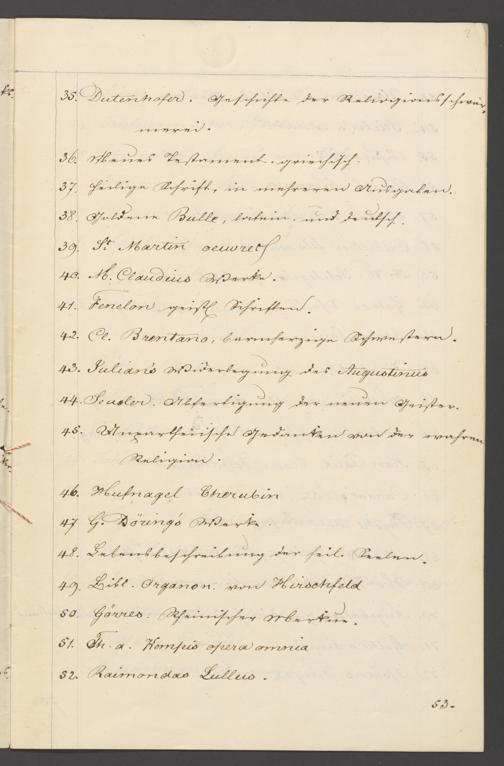 35. Dutenhofer. Geschichte der Religionsschwär-
merei.
36. Neues Testament. griechisch.
37. Heilige Schrift, in mehreren Ausgaben.
38. Goldene Bulle, latein. und deutsch.
39. St Martin oeuvres
40. M. Claudius Werke.
41. Fenelon geistl. Schriften.
42. Cl. Brentano, barmherzige Schwestern.
43. Julians Widerlegung des Augustinus
44. Abfertigung der neuen Geister.
45. Unpartheiische Gedanken von der wahren
Religion.
46. Hufnagel Cherubin
47. G. Döring's Werke
48. Lebensbeschreibung der heil. Seelen.
49. Bibl. Organon. von Hirschfeld
50. Görres. Rheinischer Merkur.
51. Th. a. Kempis opera omnia
52. Raimondas Lullus.
53-